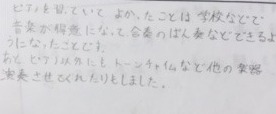 ピアノを習っていて よかったことは 学校などで
音楽が得意になって、合奏のばん奏などできるよ
うになったことです。
あと ピアノ以外にも トーンチャイムなど他の楽器
演奏させてくれたりもしました。